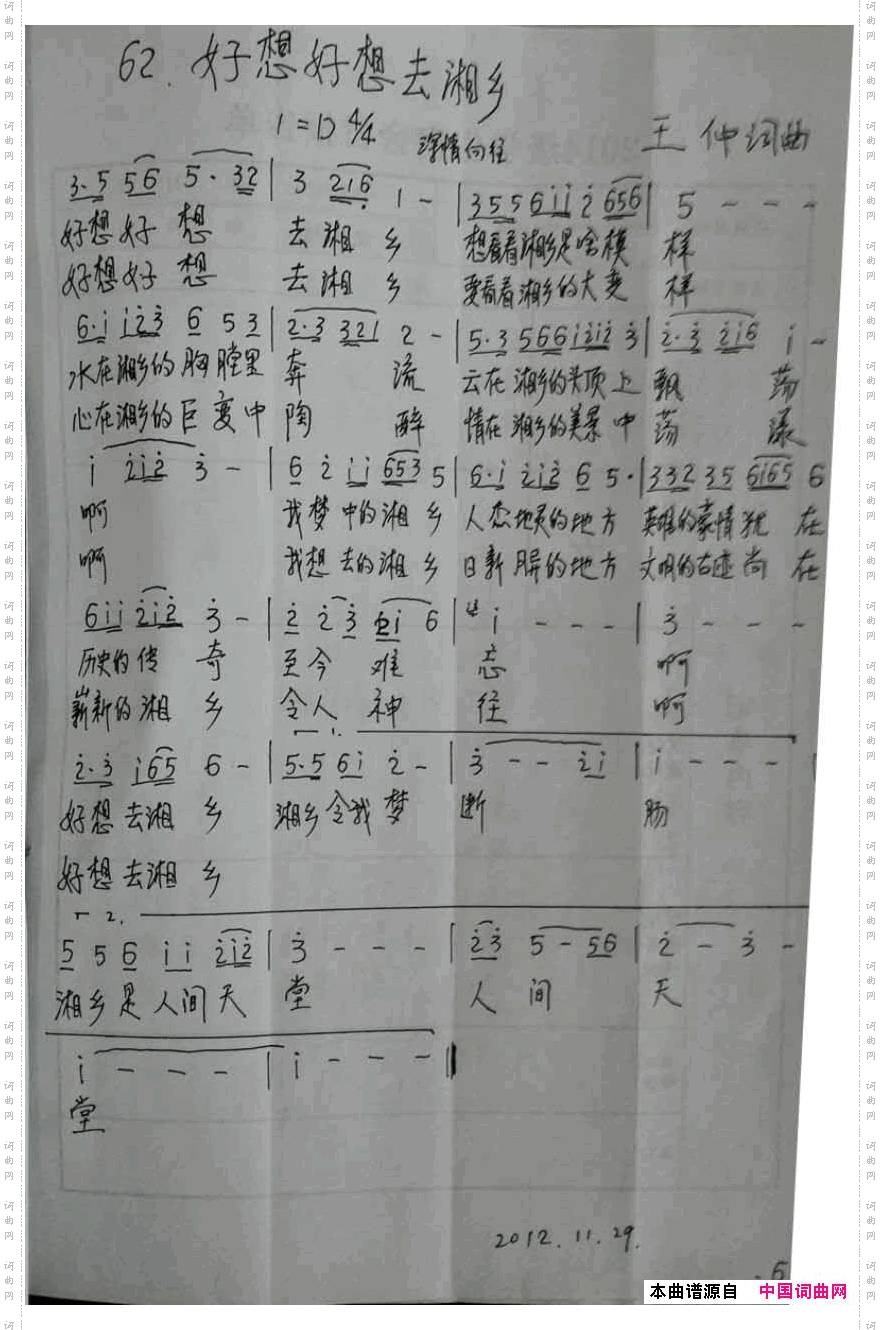 62. 好想好想去湘乡
1=D 4/4 深情向往 王 仲 词曲
3·5 56 5·32 | 3 216 1 - | 355 6i i 2 656 | 5 - - -
好想好 想 去 湘 乡 想看看湘乡是啥模 样
好想好 想 去 湘 乡 要看看湘乡的大变 样
6·i i23 6 5 3 | 2·3 321 2 - | 5·3 566 i2i2 3 | 2·3 2i6 i -
水在湘乡的胸膛里 奔 流 云在湘乡的头顶上 飘 荡
心在湘乡的巨变中 陶 醉 情在湘乡的美景中 荡 漾
i 2i2 3 - | 6 2 i i 653 5 | 6·i 2i2 6 5· | 332 35 6i65 6
啊 我梦中的湘 乡 人杰地灵的地方 英雄的豪情犹 在
啊 我想去的湘 乡 日新月异的地方 文明的古迹尚 在
6i i 2i2 3 - | 2 2 3 2i 6 | i - - - | 3 - - -
历史的传 奇 至今 难 忘 啊
崭新的湘 乡 令人 神 往 啊
1.
2·3 i65 6 - | 5·5 6i 2 - | 3 - - 2i | i - - - |
好想去湘 乡 湘乡令我 梦 断 肠
好想去湘 乡
2.
5 5 6 i i 2i2 | 3 - - - | 23 5 - 56 | 2 - 3 -
湘乡是人间天 堂 人 间 天
i - - - | i - - - ‖
堂
2012.11.29.
本曲谱源自 中国词曲网